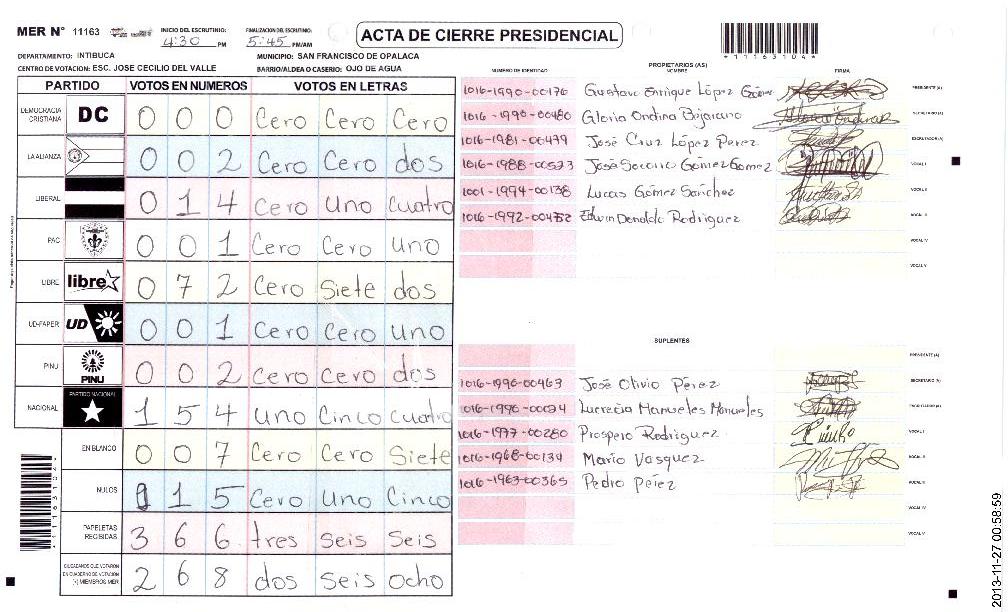 MER N° 11163
INICIO DEL ESCRUTINIO:
4:30 PM
FINALIZACION DEL ESCRUTINIO:
5:45 PM/AM
ACTA DE CIERRE PRESIDENCIAL
*11163104*
DEPARTAMENTO: INTIBUCA
MUNICIPIO: SAN FRANCISCO DE OPALACA
CENTRO DE VOTACION: ESC. JOSE CECILIO DEL VALLE
BARRIO/ALDEA O CASERIO: OJO DE AGUA
PARTIDO VOTOS EN NUMEROS VOTOS EN LETRAS
DEMOCRACIA CRISTIANA DC 0 0 0 Cero Cero Cero
LA ALIANZA 0 0 2 Cero Cero dos
LIBERAL 0 1 4 Cero Uno cuatro
PAC 0 0 1 Cero Cero uno
LIBRE libre 0 7 2 Cero Siete dos
UD-FAPER UD 0 0 1 Cero Cero uno
PINU PINU 0 0 2 Cero Cero dos
NACIONAL PARTIDO NACIONAL 1 5 4 uno Cinco cuatro
EN BLANCO 0 0 7 Cero Cero Siete
NULOS 0 1 5 Cero Uno Cinco
PAPELETAS RECIBIDAS 3 6 6 tres seis seis
CIUDADANOS QUE VOTARON EN CUADERNO DE VOTACION (+) MIEMBROS MER 2 6 8 dos seis ocho
PROPIETARIOS (AS)
NUMERO DE IDENTIDAD NOMBRE FIRMA
1016-1990-00176 Gustavo Enrique López Gómez PRESIDENTE (A)
1016-1990-00480 Gloria Ondina Bejarano SECRETARIO (A)
1016-1981-00479 José Cruz López Perez ESCRUTADOR (A)
1016-1988-00573 José Socorro Gómez Gomez VOCAL I
1001-1994-00138 Lucas Gómez Sanchez VOCAL II
1016-1992-00452 Edwin Donaldo Rodriguez VOCAL III
VOCAL IV
VOCAL V
SUPLENTES
PRESIDENTE (A)
1016-1996-00463 José Olivio Pérez SECRETARIO (A)
1016-1996-00034 Lucrecia Manueles Manueles ESCRUTADOR (A)
1016-1977-00280 Prospero Rodriguez VOCAL I
1016-1968-00134 Mario Vasquez VOCAL II
1016-1963-00365 Pedro Pérez VOCAL III
VOCAL IV
VOCAL V
*11163104*
2013-11-27 00:58:59